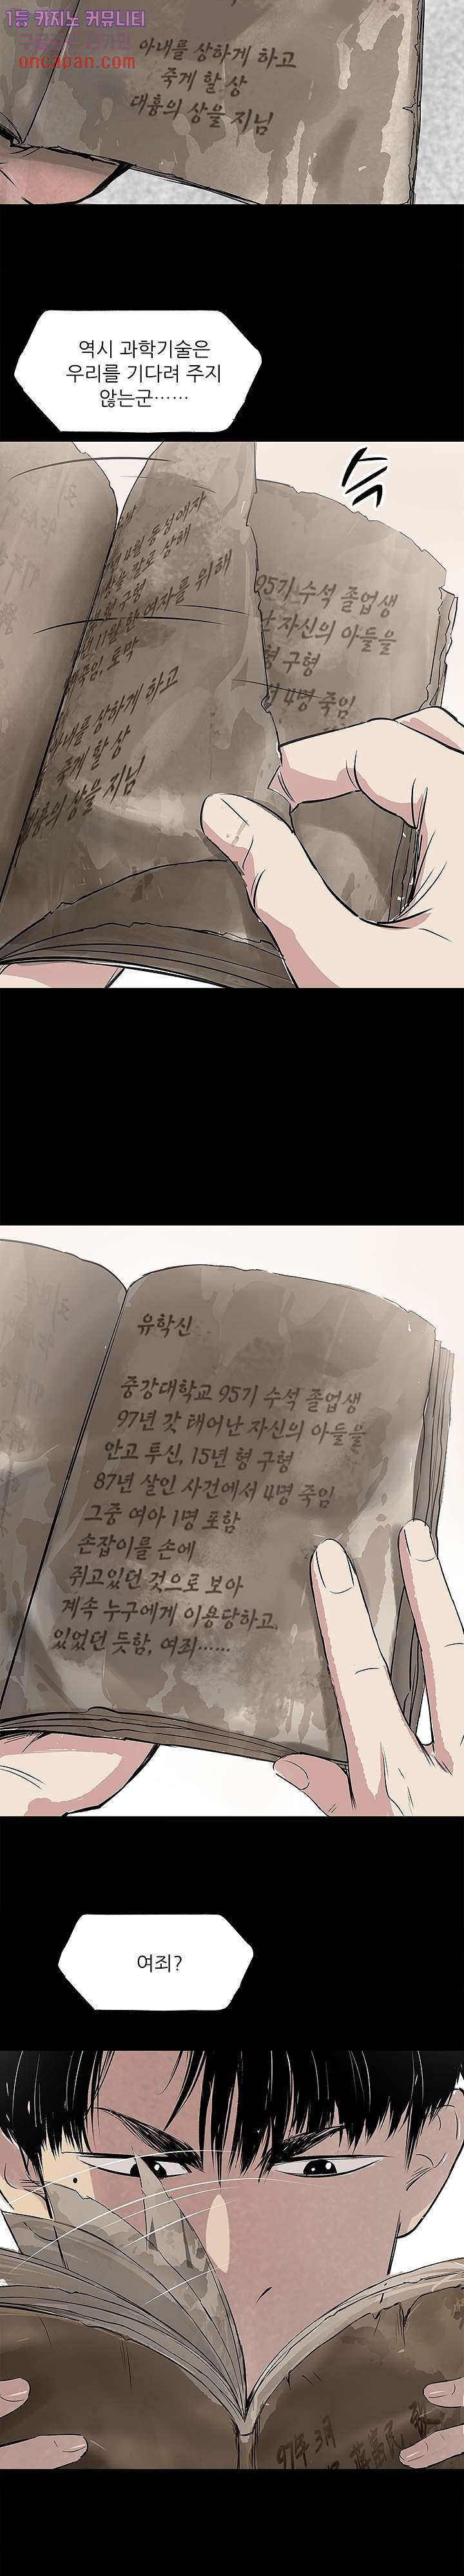 1등 카지노 커뮤니티
oncapan.com
아내를 상하게 하고
죽게 할 상
대흉의 상을 지님
역시 과학기술은
우리를 기다려 주지
않는군……
스
4월 동성애자
상해
구형
11월 한 여자를 위해
죽임, 토막
아내를 상하게 하고
죽게 할 상
대흉의 상을 지님
95기 수석 졸업생
난 자신의 아들을
형 구형
4명 죽임
유학신
중강대학교 95기 수석 졸업생
97년 갓 태어난 자신의 아들을
안고 투신, 15년 형 구형
87년 살인 사건에서 4명 죽임
그중 여아 1명 포함
손잡이를 손에
쥐고있던 것으로 보아
계속 누구에게 이용당하고
있었던 듯함, 여죄……
여죄?
97年 3月